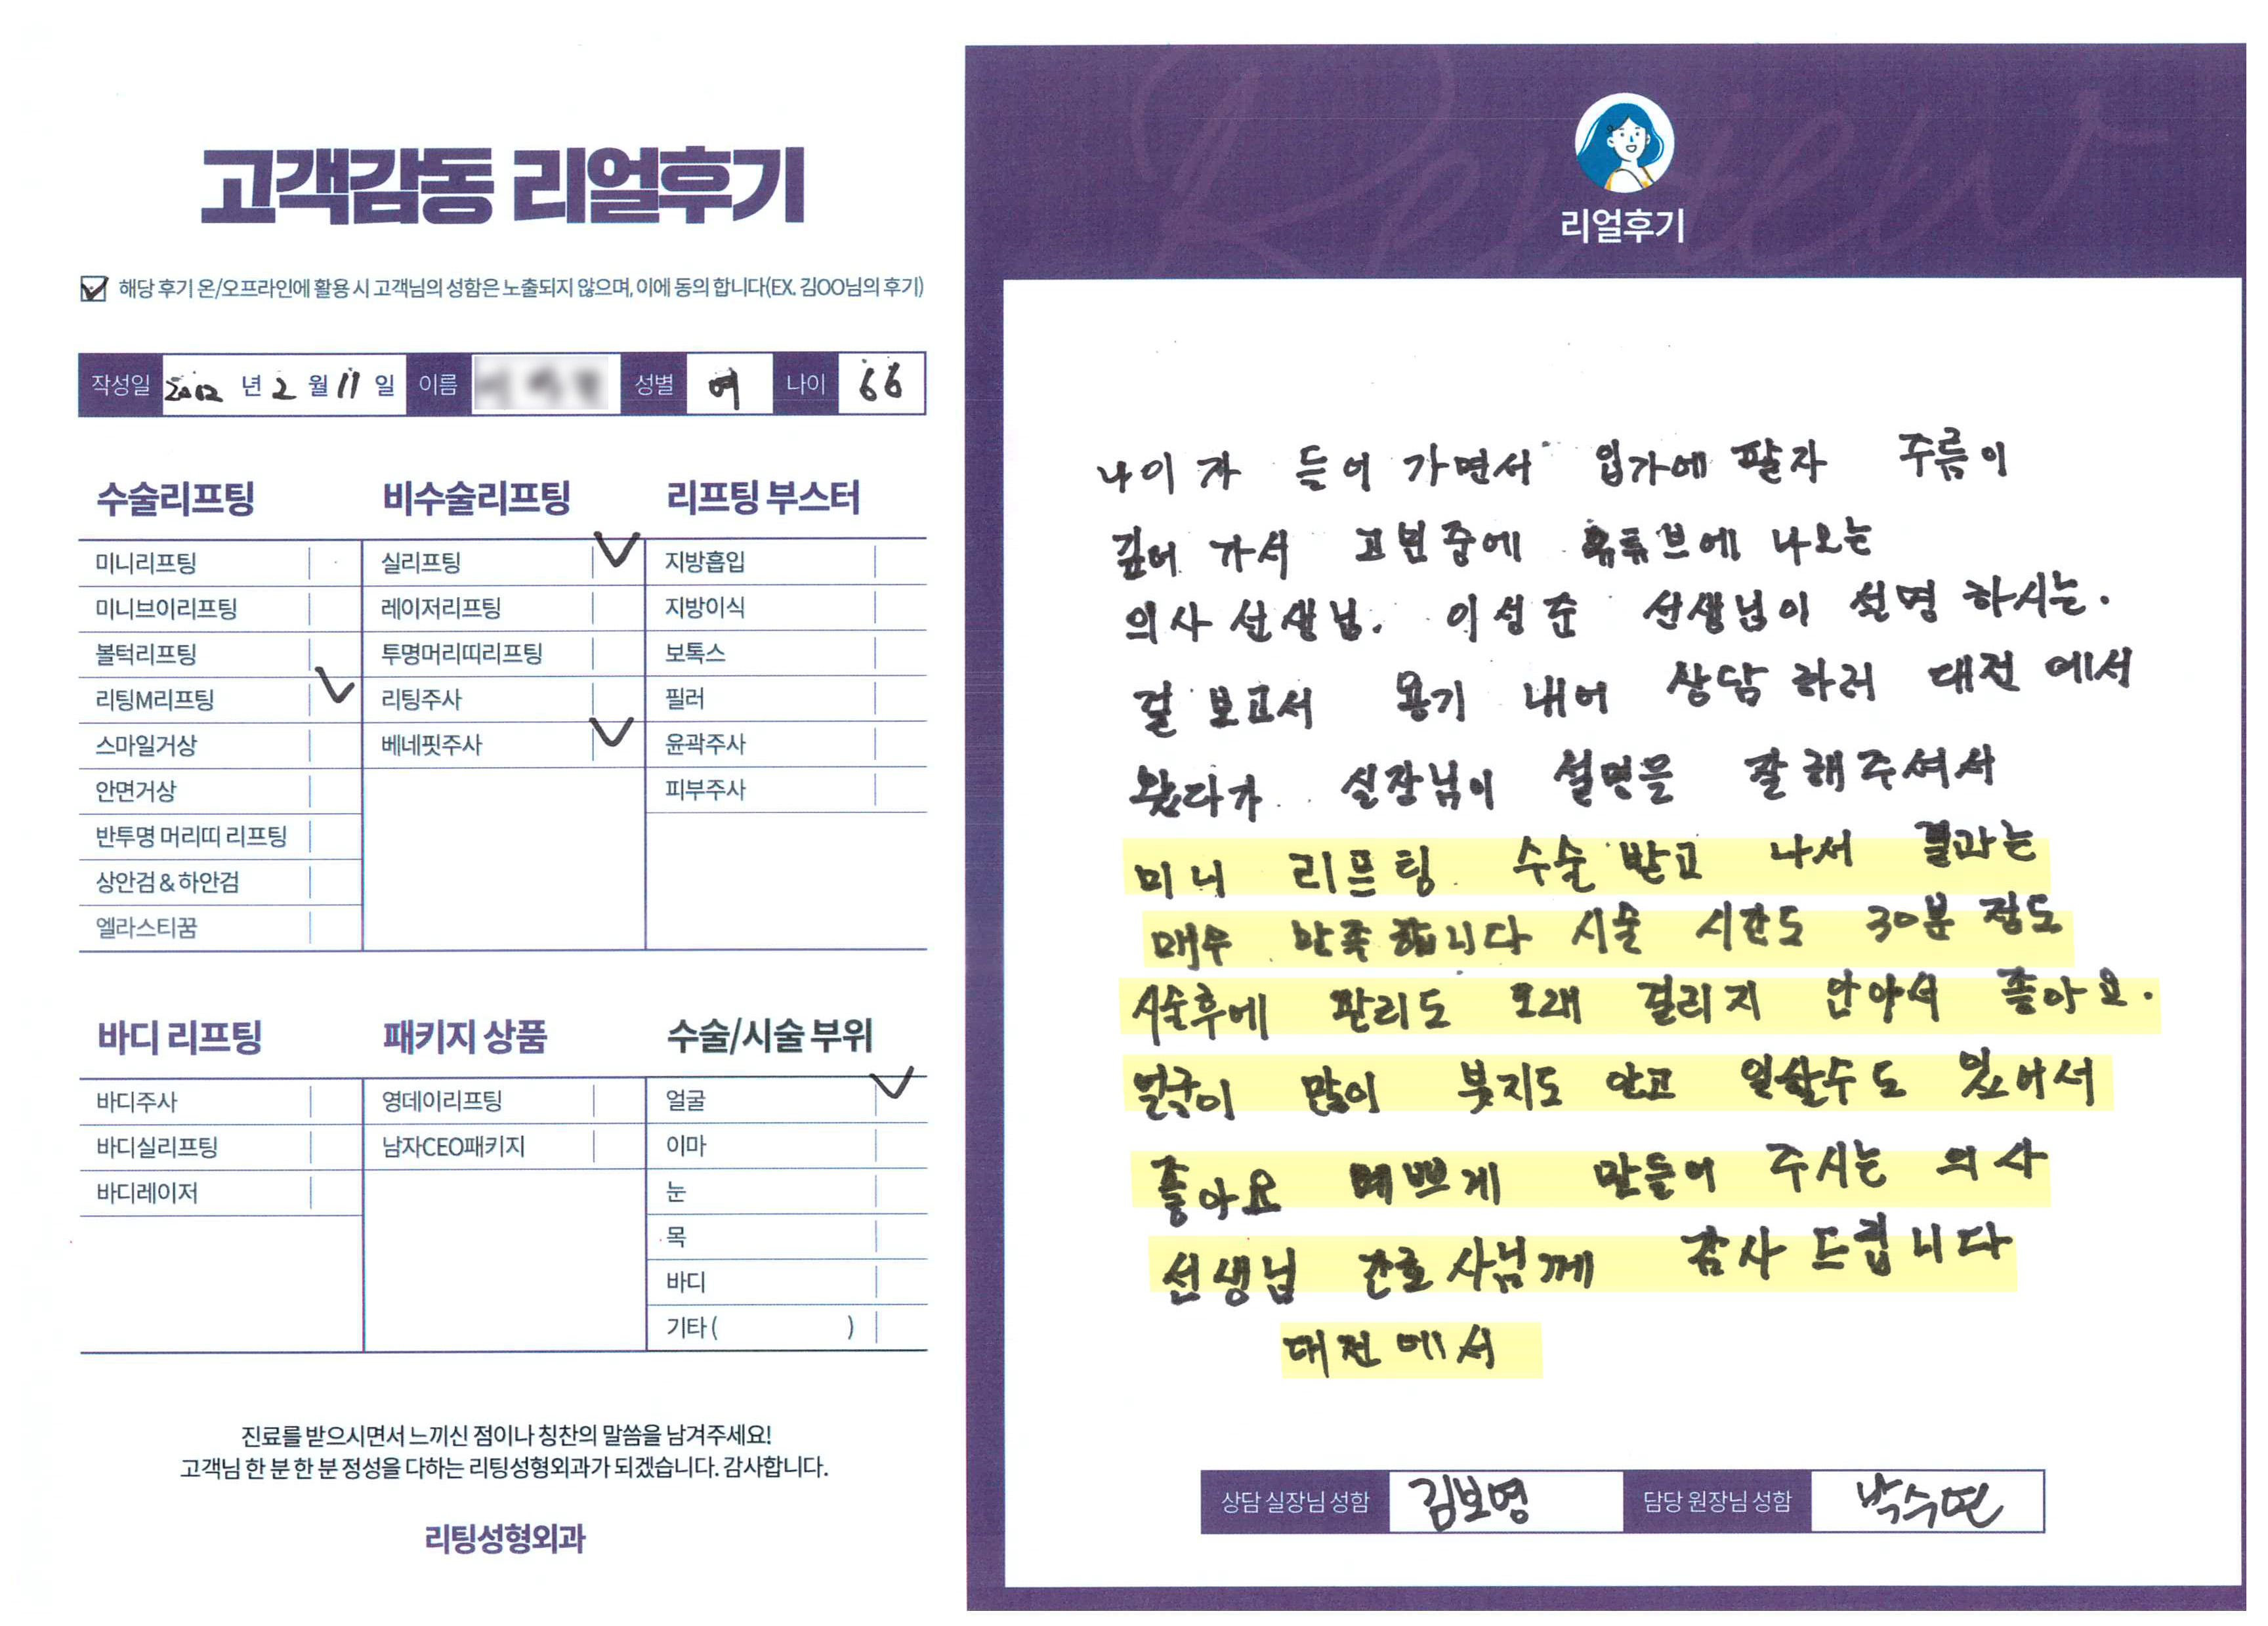 고객감동 리얼후기
해당 후기 온/오프라인에 활용 시 고객님의 성함은 노출되지 않으며, 이에 동의 합니다(EX. 김OO님의 후기)
작성일 2002 년 2 월 11 일 이름 성별 여 나이 66
수술리프팅
미니리프팅
미니브이리프팅
볼턱리프팅
리팅M리프팅
스마일거상
안면거상
반투명 머리띠 리프팅
상안검 & 하안검
엘라스티꿈
비수술리프팅
실리프팅
레이저리프팅
투명머리띠리프팅
리팅주사
베네핏주사
리프팅 부스터
지방흡입
지방이식
보톡스
필러
윤곽주사
피부주사
바디 리프팅
바디주사
바디실리프팅
바디레이저
패키지 상품
영데이리프팅
남자CEO패키지
수술/시술 부위
얼굴
이마
눈
목
바디
기타 ( )
진료를 받으시면서 느끼신 점이나 칭찬의 말씀을 남겨주세요!
고객님 한 분 한 분 정성을 다하는 리팅성형외과가 되겠습니다. 감사합니다.
리팅성형외과
Review
리얼후기
나이가 들어 가면서 입가에 팔자 주름이
깊어 가서 고민중에 유튜브에 나오는
의사 선생님. 이성준 선생님이 설명 하시는.
걸 보고서 용기 내어 상담 하러 대전 에서
왔다가 실장님이 설명을 잘 해주셔서
미니 리프팅 수술 받고 나서 결과는
매우 만족 합니다 시술 시간도 30분 정도
시술후에 관리도 오래 걸리지 안아서 좋아요.
얼굴이 많이 붓지도 안고 일할수도 있어서
좋아요 예쁘게 만들어 주시는 의사
선생님 간호사님께 감사 드립니다
대전에서
상담 실장님 성함 김보영 담당 원장님 성함 박수연